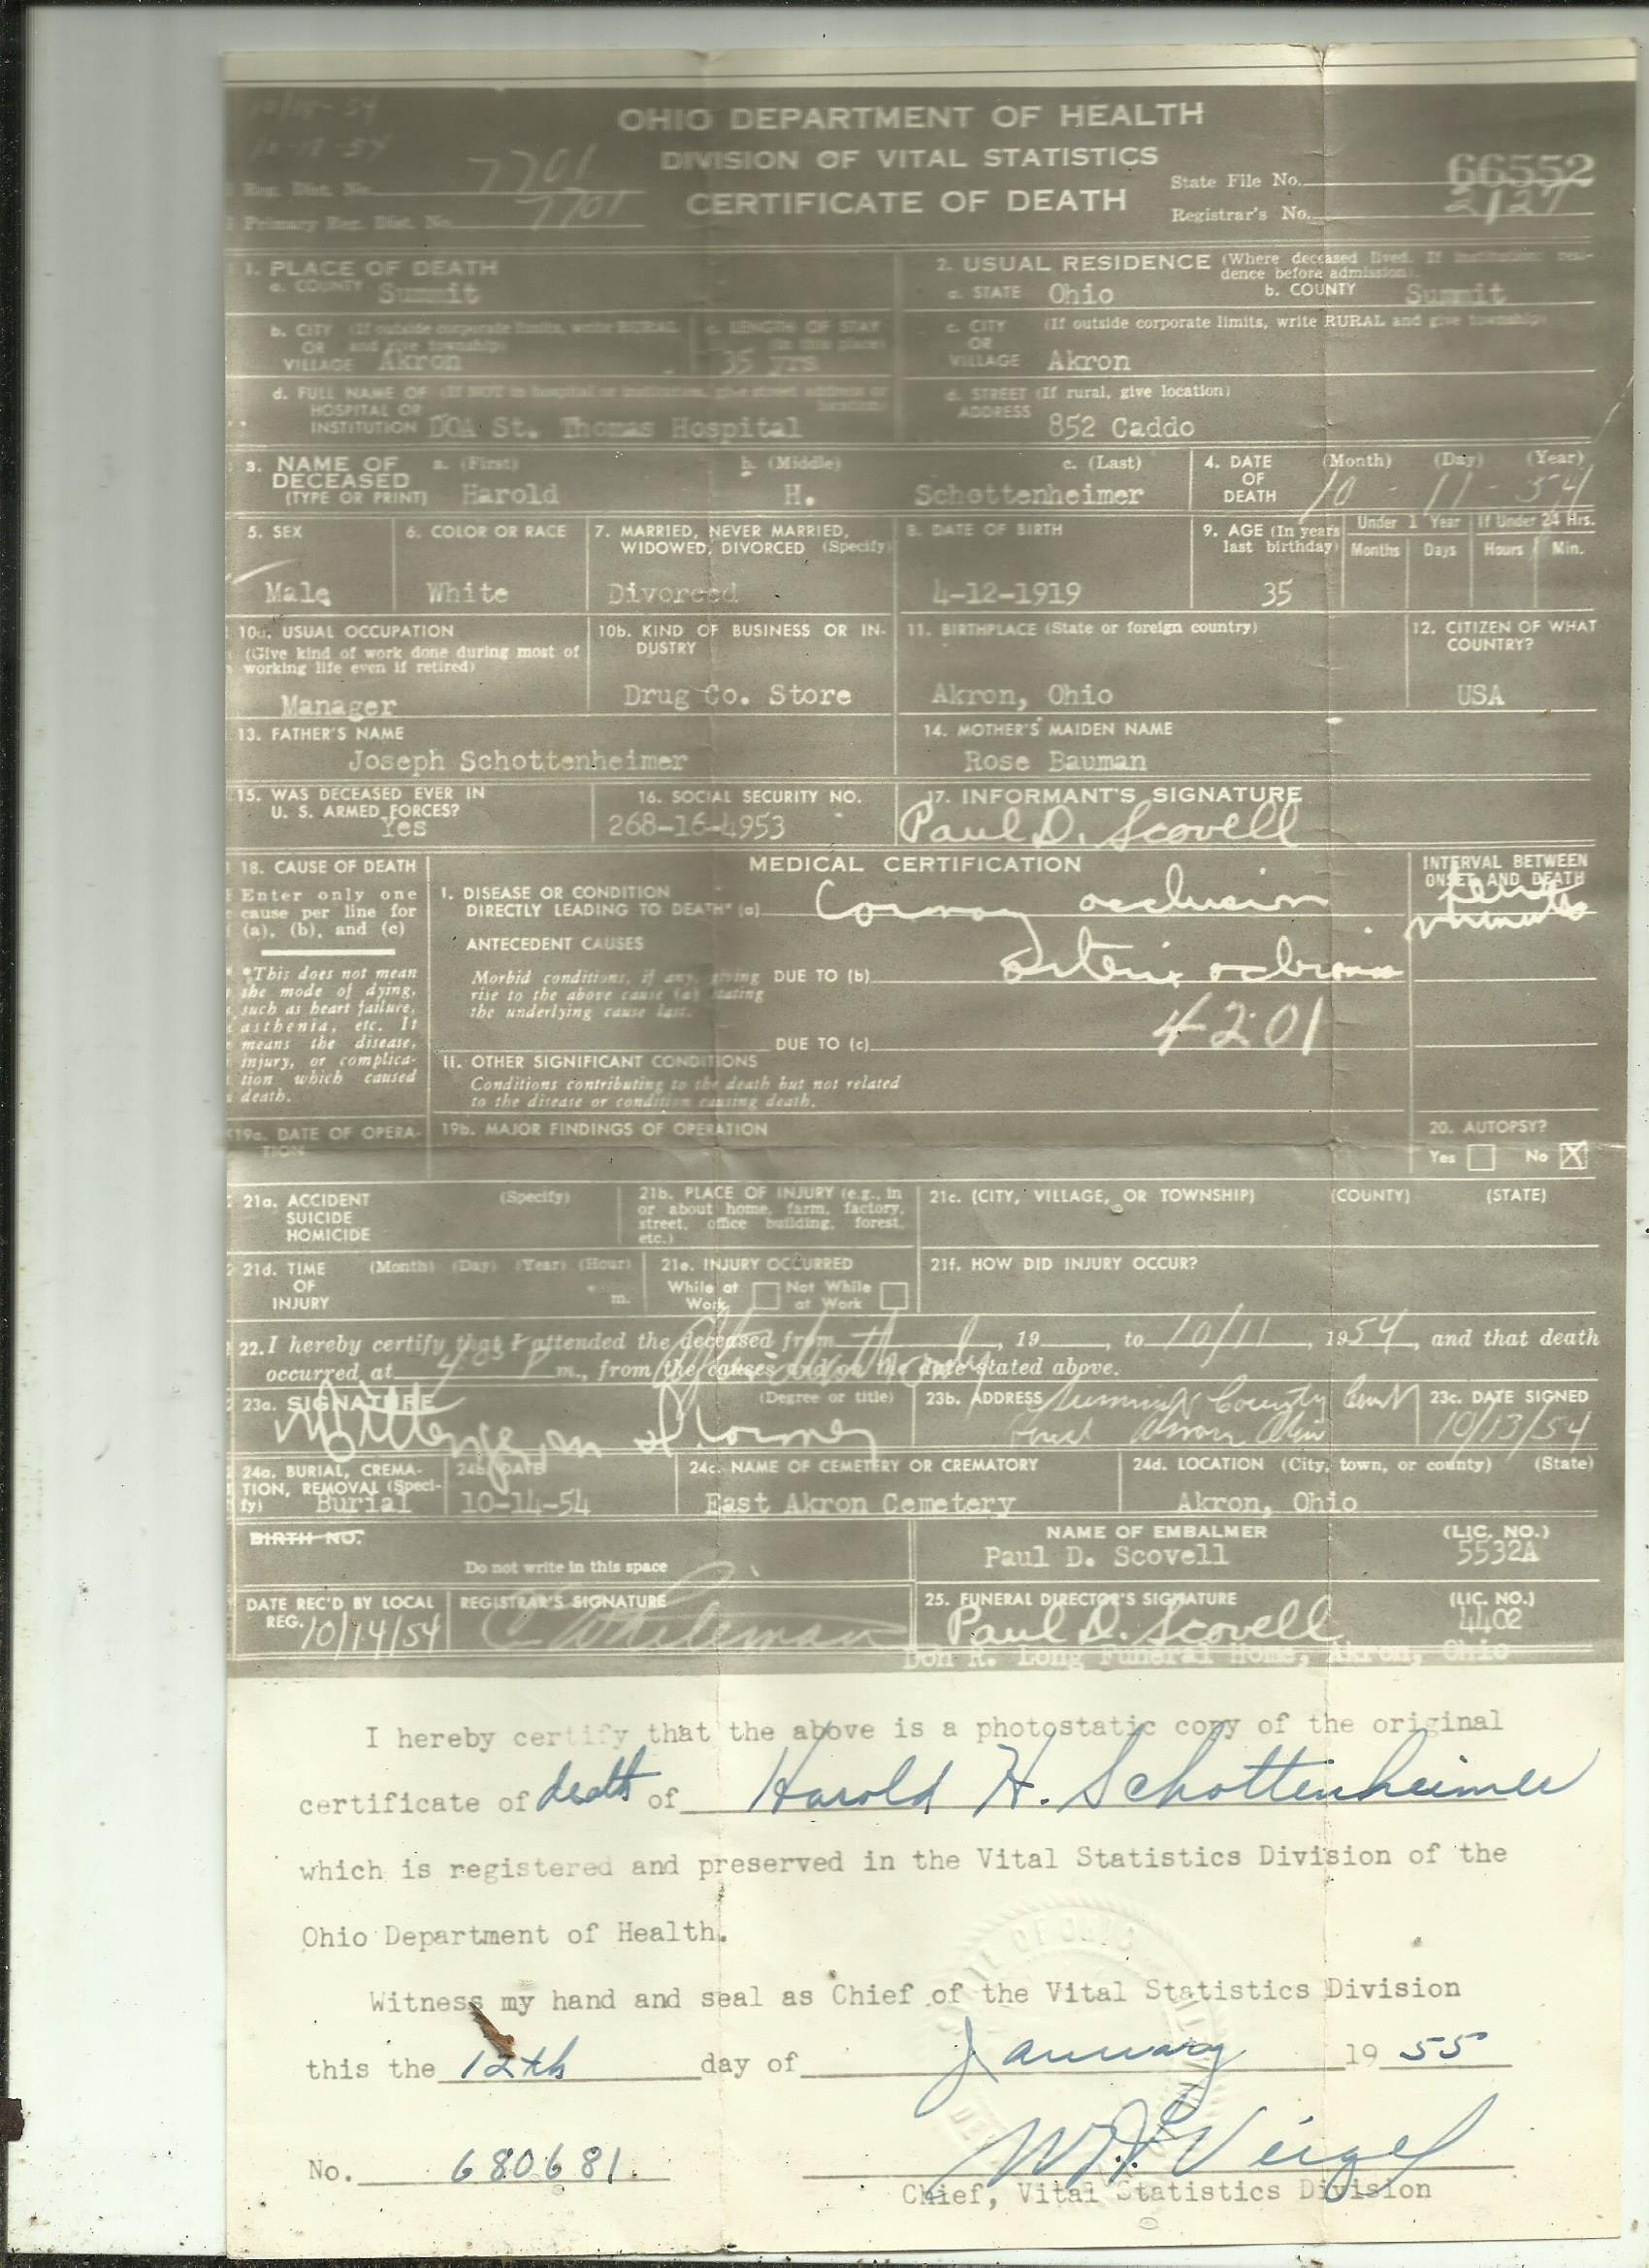 10/14-54
10-18-54
OHIO DEPARTMENT OF HEALTH
DIVISION OF VITAL STATISTICS
CERTIFICATE OF DEATH
Reg. Dist. No. 7701
Primary Reg. Dist. No. 7701
State File No. 66552
Registrar's No. 2127
1. PLACE OF DEATH
a. COUNTY Summit
b. CITY (If outside corporate limits, write RURAL
OR and give township)
VILLAGE Akron
c. LENGTH OF STAY
(in this place)
35 yrs
d. FULL NAME OF (If NOT in hospital or institution, give street address or
location)
HOSPITAL OR
INSTITUTION DOA St. Thomas Hospital
2. USUAL RESIDENCE (Where deceased lived. If institution: resi-
dence before admission).
a. STATE Ohio b. COUNTY Summit
c. CITY (If outside corporate limits, write RURAL and give township)
OR
VILLAGE Akron
d. STREET (If rural, give location)
ADDRESS
852 Caddo
3. NAME OF a. (First) b. (Middle) c. (Last)
DECEASED
(TYPE OR PRINT) Harold H. Schottenheimer
4. DATE (Month) (Day) (Year)
OF
DEATH 10 - 11 - 54
5. SEX
Male
6. COLOR OR RACE
White
7. MARRIED, NEVER MARRIED,
WIDOWED, DIVORCED (Specify)
Divorced
8. DATE OF BIRTH
4-12-1919
9. AGE (In years
last birthday)
35
Under 1 Year
Months Days
If Under 24 Hrs.
Hours Min.
10a. USUAL OCCUPATION
(Give kind of work done during most of
working life even if retired)
Manager
10b. KIND OF BUSINESS OR IN-
DUSTRY
Drug Co. Store
11. BIRTHPLACE (State or foreign country)
Akron, Ohio
12. CITIZEN OF WHAT
COUNTRY?
USA
13. FATHER'S NAME
Joseph Schottenheimer
14. MOTHER'S MAIDEN NAME
Rose Bauman
15. WAS DECEASED EVER IN
U. S. ARMED FORCES?
Yes
16. SOCIAL SECURITY NO.
268-16-4953
17. INFORMANT'S SIGNATURE
Paul D. Scovell
18. CAUSE OF DEATH
Enter only one
cause per line for
(a), (b), and (c)
*This does not mean
the mode of dying,
such as heart failure,
asthenia, etc. It
means the disease,
injury, or complica-
tion which caused
death.
MEDICAL CERTIFICATION
I. DISEASE OR CONDITION
DIRECTLY LEADING TO DEATH* (a) occlusion
ANTECEDENT CAUSES
Morbid conditions, if any, giving
rise to the above cause (a) stating
the underlying cause last.
DUE TO (b)
4201
DUE TO (c)
II. OTHER SIGNIFICANT CONDITIONS
Conditions contributing to the death but not related
to the disease or condition causing death.
INTERVAL BETWEEN
ONSET AND DEATH
minutes
19a. DATE OF OPERA-
TION
19b. MAJOR FINDINGS OF OPERATION
20. AUTOPSY?
Yes No X
21a. ACCIDENT (Specify)
SUICIDE
HOMICIDE
21b. PLACE OF INJURY (e.g., in
or about home, farm, factory,
street, office building, forest,
etc.)
21c. (CITY, VILLAGE, OR TOWNSHIP) (COUNTY) (STATE)
21d. TIME (Month) (Day) (Year) (Hour)
OF
INJURY m.
21e. INJURY OCCURRED
While at Not While
Work at Work
21f. HOW DID INJURY OCCUR?
22. I hereby certify that I attended the deceased from , 19 , to 10/11 , 1954, and that death
occurred at m., from the causes and on the date stated above.
23a. SIGNATURE (Degree or title)
23b. ADDRESS Summit County
Akron Ohio
23c. DATE SIGNED
10/13/54
24a. BURIAL, CREMA-
TION, REMOVAL (Speci-
fy) Burial
24b. DATE
10-14-54
24c. NAME OF CEMETERY OR CREMATORY
East Akron Cemetery
24d. LOCATION (City, town, or county) (State)
Akron, Ohio
BIRTH NO.
Do not write in this space
NAME OF EMBALMER (LIC. NO.)
Paul D. Scovell 5532A
DATE REC'D BY LOCAL
REG. 10/14/54
REGISTRAR'S SIGNATURE
C Whiteman
25. FUNERAL DIRECTOR'S SIGNATURE (LIC. NO.)
Paul D. Scovell 4402
Don R. Long Funeral Home, Akron, Ohio
I hereby certify that the above is a photostatic copy of the original
certificate of death of Harold H. Schottenheimer
which is registered and preserved in the Vital Statistics Division of the
Ohio Department of Health.
Witness my hand and seal as Chief of the Vital Statistics Division
this the 12th day of January 19 55
No. 680681
Chief, Vital Statistics Division